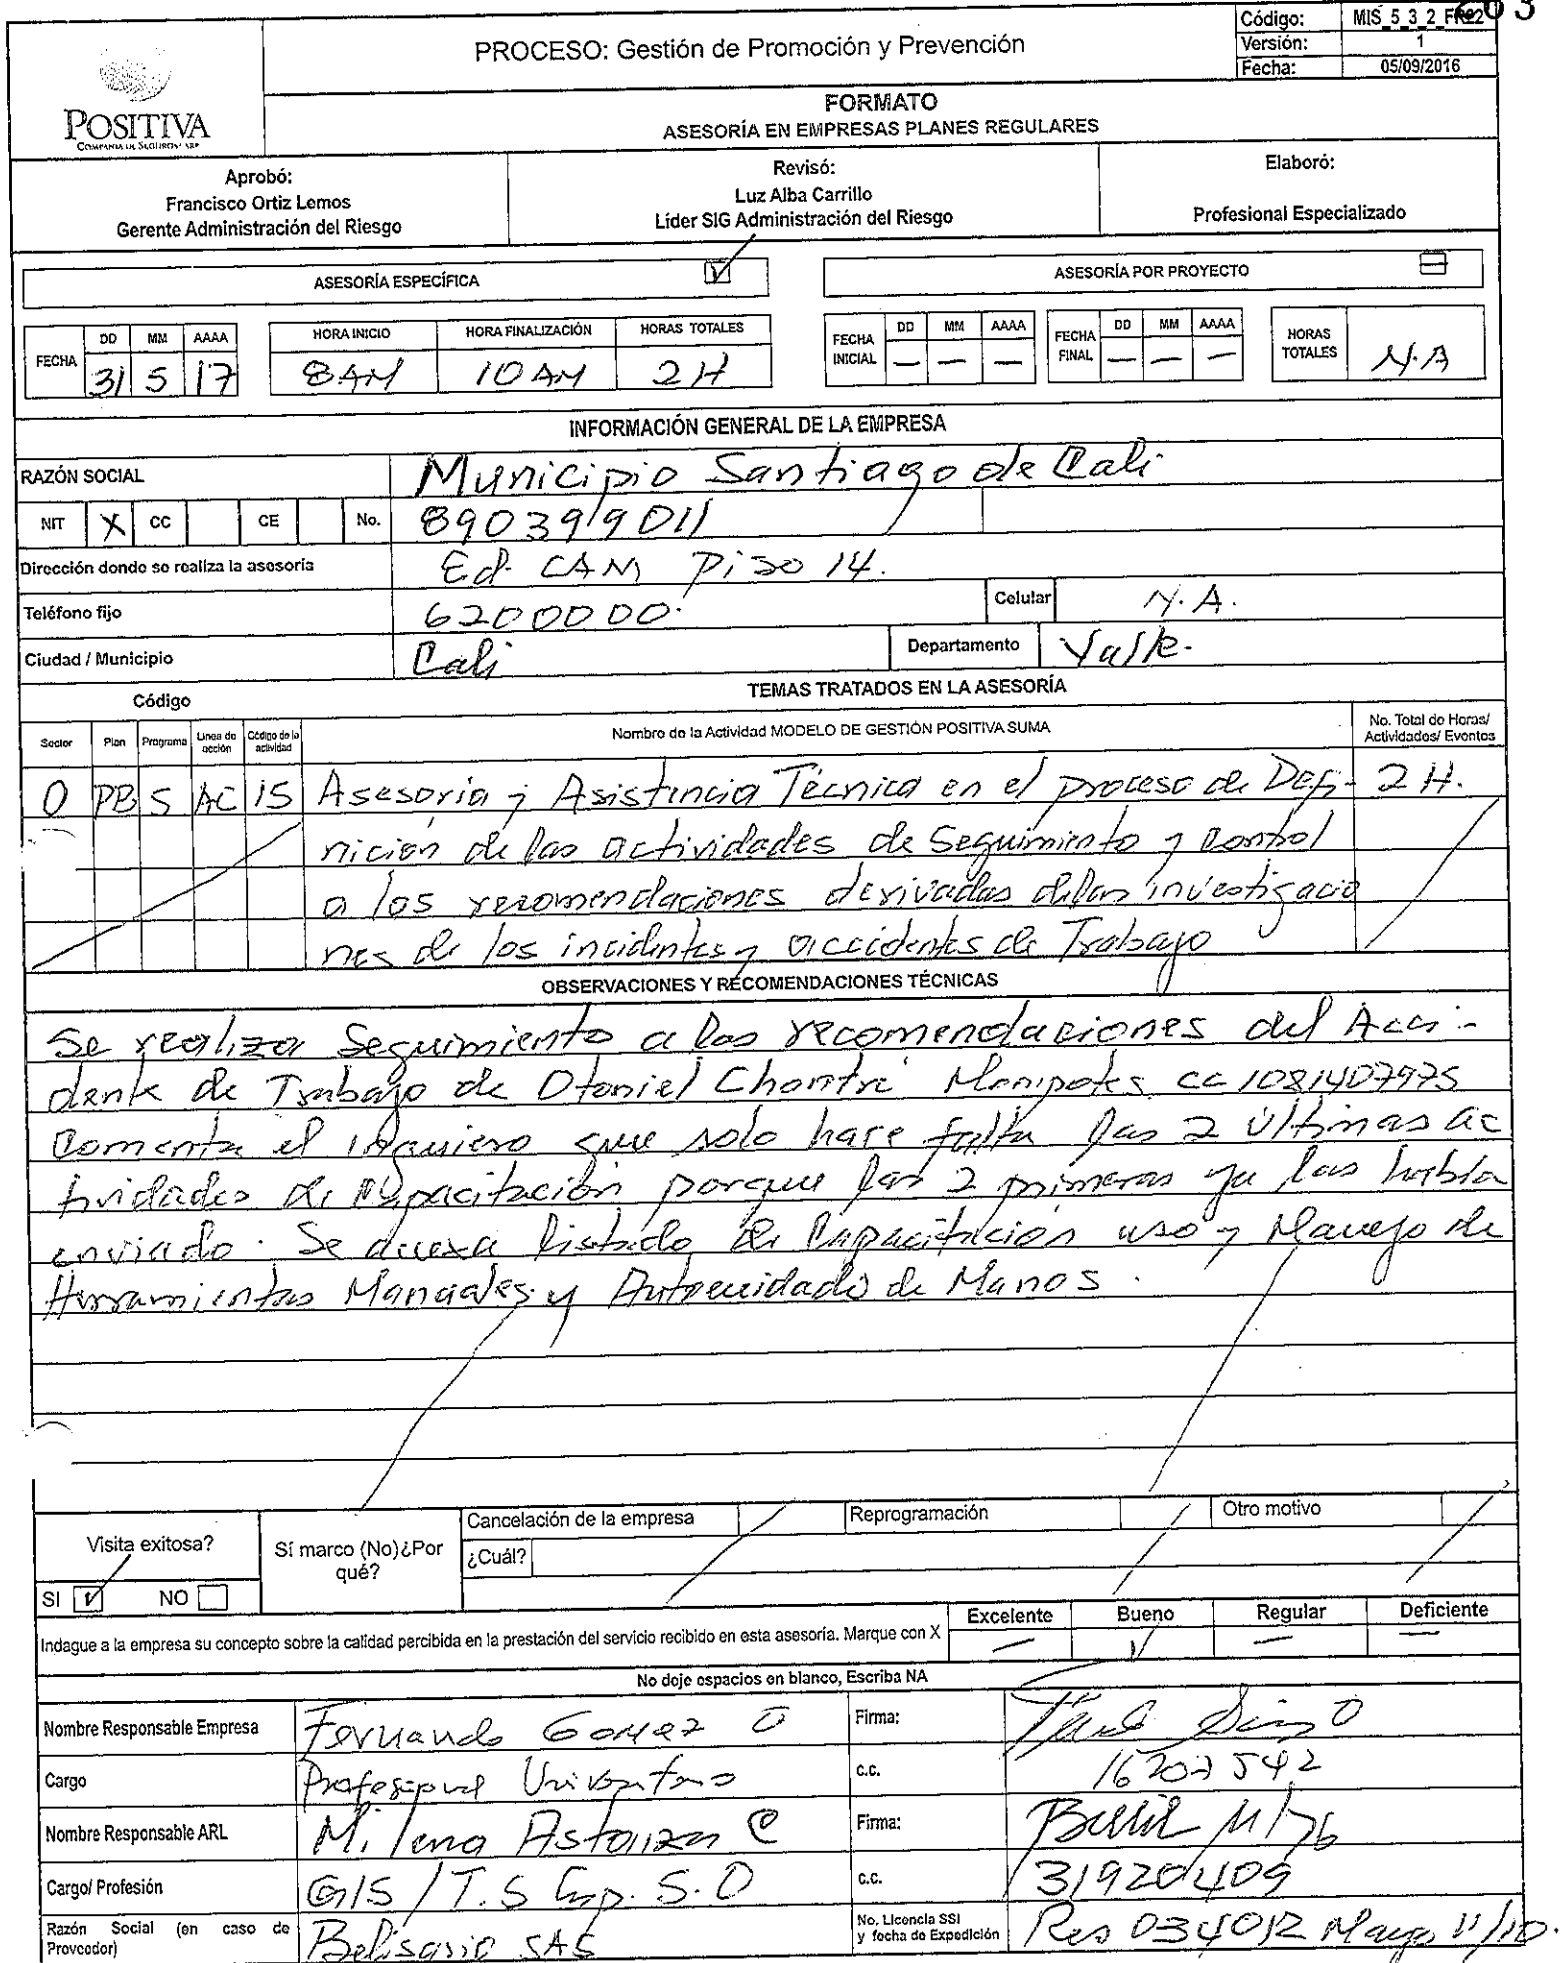 263
POSITIVA
COMPAÑÍA DE SEGUROS / ARP
PROCESO: Gestión de Promoción y Prevención
Código: MIS_5_3_2_FR22
Versión: 1
Fecha: 05/09/2016
FORMATO
ASESORÍA EN EMPRESAS PLANES REGULARES
Aprobó:
Francisco Ortiz Lemos
Gerente Administración del Riesgo
Revisó:
Luz Alba Carrillo
Líder SIG Administración del Riesgo
Elaboró:
Profesional Especializado
ASESORÍA ESPECÍFICA
ASESORÍA POR PROYECTO
FECHA DD MM AAAA
31 5 17
HORA INICIO HORA FINALIZACIÓN HORAS TOTALES
8 AM 10 AM 2 H
FECHA INICIAL DD MM AAAA
— — —
FECHA FINAL DD MM AAAA
— — —
HORAS TOTALES N.A
INFORMACIÓN GENERAL DE LA EMPRESA
RAZÓN SOCIAL Municipio Santiago de Cali
NIT X CC CE No. 890399011
Dirección donde se realiza la asesoría Ed. CAM Piso 14.
Teléfono fijo 6200000. Celular N.A.
Ciudad / Municipio Cali Departamento Valle.
Código TEMAS TRATADOS EN LA ASESORÍA
Sector Plan Programa Linea de acción Código de la actividad Nombre de la Actividad MODELO DE GESTIÓN POSITIVA SUMA No. Total de Horas/ Actividades/ Eventos
O PB S AC 15 Asesoria y Asistencia Técnica en el proceso de Defi- 2 H.
nición de las actividades de Seguimiento y Control
a los recomendaciones derivadas de las investigacio
nes de los incidentes y accidentes de Trabajo
OBSERVACIONES Y RECOMENDACIONES TÉCNICAS
Se realiza Seguimiento a las recomendaciones del Acci-
dente de Trabajo de Otoniel Chantre cc 1081407975
Comenta el que solo hace falta las 2 últimas ac
tividades de Capacitación porque las 2 primeras ya las habia
enviado. Se listado de Capacitación uso y Manejo de
Herramientas Manuales y Autocuidado de Manos.
Visita exitosa?
SI NO
Sí marco (No)¿Por qué?
Cancelación de la empresa Reprogramación Otro motivo
¿Cuál?
Indague a la empresa su concepto sobre la calidad percibida en la prestación del servicio recibido en esta asesoría. Marque con X
Excelente Bueno Regular Deficiente
No deje espacios en blanco, Escriba NA
Nombre Responsable Empresa Fernando Gomez O Firma:
Cargo Profesional Universitario c.c. 16707542
Nombre Responsable ARL Milena Astaiza C Firma:
Cargo/ Profesión GIS / T.S Esp. S.O c.c. 31920409
Razón Social (en caso de Proveedor) Belisario SAS No. Licencia SSI y fecha de Expedición Res 034012 Mayo 11/10.